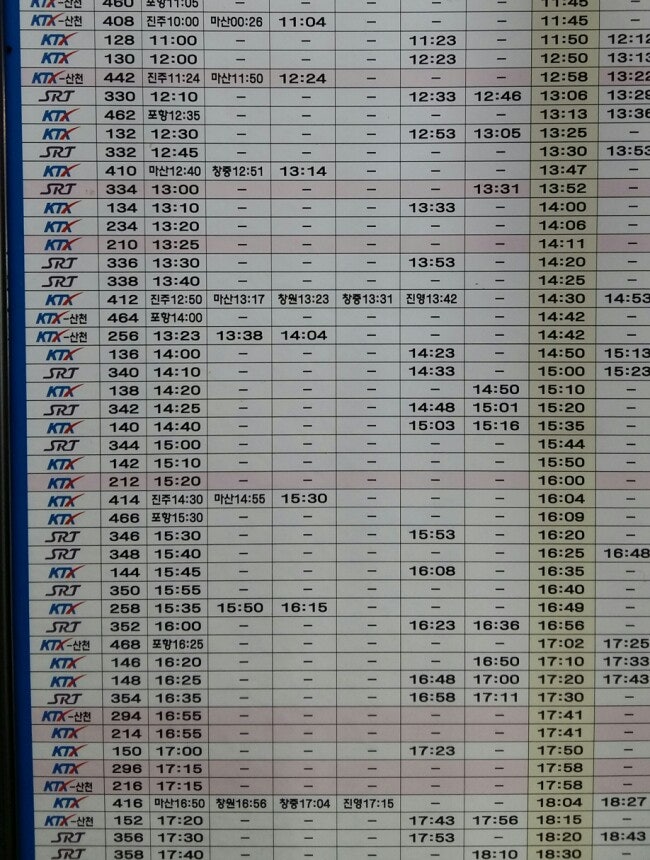 KTX-산천 460 포항11:05 – – – – – 11:45 –
KTX-산천 408 진주10:00 마산00:26 11:04 – – – 11:45 –
KTX 128 11:00 – – – 11:23 – 11:50 12:12
KTX 130 12:00 – – – 12:23 – 12:50 13:13
KTX-산천 442 진주11:24 마산11:50 12:24 – – – 12:58 13:22
SRT 330 12:10 – – – 12:33 12:46 13:06 13:29
KTX 462 포항12:35 – – – – – 13:13 13:36
KTX 132 12:30 – – – 12:53 13:05 13:25 –
SRT 332 12:45 – – – – – 13:30 13:53
KTX 410 마산12:40 창중12:51 13:14 – – – 13:47 –
SRT 334 13:00 – – – – 13:31 13:52 –
KTX 134 13:10 – – – 13:33 – 14:00 –
KTX 234 13:20 – – – – – 14:06 –
KTX 210 13:25 – – – – – 14:11 –
SRT 336 13:30 – – – 13:53 – 14:20 –
SRT 338 13:40 – – – – – 14:25 –
KTX 412 진주12:50 마산13:17 창원13:23 창중13:31 진영13:42 – 14:30 14:53
KTX-산천 464 포항14:00 – – – – – 14:42 –
KTX-산천 256 13:23 13:38 14:04 – – – 14:42 –
KTX 136 14:00 – – – 14:23 – 14:50 15:13
SRT 340 14:10 – – – 14:33 – 15:00 15:23
KTX 138 14:20 – – – – 14:50 15:10 –
SRT 342 14:25 – – – 14:48 15:01 15:20 –
KTX 140 14:40 – – – 15:03 15:16 15:35 –
SRT 344 15:00 – – – – – 15:44 –
KTX 142 15:10 – – – – – 15:50 –
KTX 212 15:20 – – – – – 16:00 –
KTX 414 진주14:30 마산14:55 15:30 – – – 16:04 –
KTX 466 포항15:30 – – – – – 16:09 –
SRT 346 15:30 – – – 15:53 – 16:20 –
SRT 348 15:40 – – – – – 16:25 16:48
KTX 144 15:45 – – – 16:08 – 16:35 –
SRT 350 15:55 – – – – – 16:40 –
KTX 258 15:35 15:50 16:15 – – – 16:49 –
SRT 352 16:00 – – – 16:23 16:36 16:56 –
KTX-산천 468 포항16:25 – – – – – 17:02 17:25
KTX 146 16:20 – – – – 16:50 17:10 17:33
KTX 148 16:25 – – – 16:48 17:00 17:20 17:43
SRT 354 16:35 – – – 16:58 17:11 17:30 –
KTX-산천 294 16:55 – – – – – 17:41 –
KTX 214 16:55 – – – – – 17:41 –
KTX 150 17:00 – – – 17:23 – 17:50 –
KTX 296 17:15 – – – – – 17:58 –
KTX-산천 216 17:15 – – – – – 17:58 –
KTX 416 마산16:50 창원16:56 창중17:04 진영17:15 – – 18:04 18:27
KTX-산천 152 17:20 – – – 17:43 17:56 18:15 –
SRT 356 17:30 – – – 17:53 – 18:20 18:43
SRT 358 17:40 – – – – 18:10 18:30 –